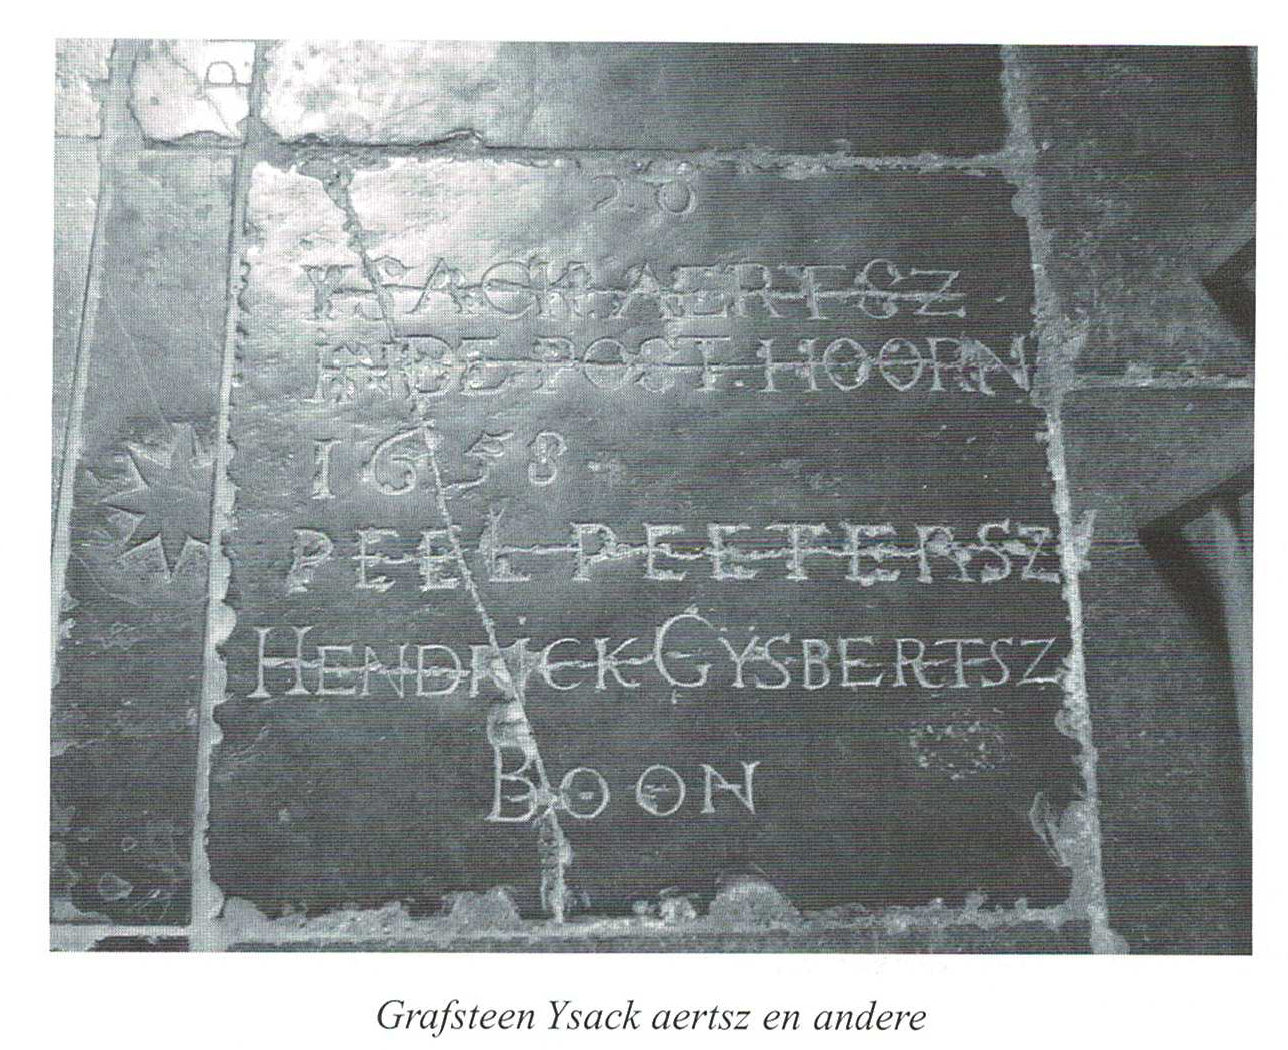 20
YSACK. AERTSZ
INDE POST. HOORN
1658
PEEL PEETERSZ
HENDRICK GYSBERTSZ
BOON
Grafsteen Ysack aertsz en andere